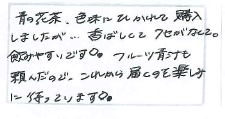 青の花茶、色味にひかれて購入
しましたが… 香ばしくて クセがなくて。
飲みやすいです〇。 フルーツ青汁も
頼んだので、これから届くのを楽しみ
に待っています〇。